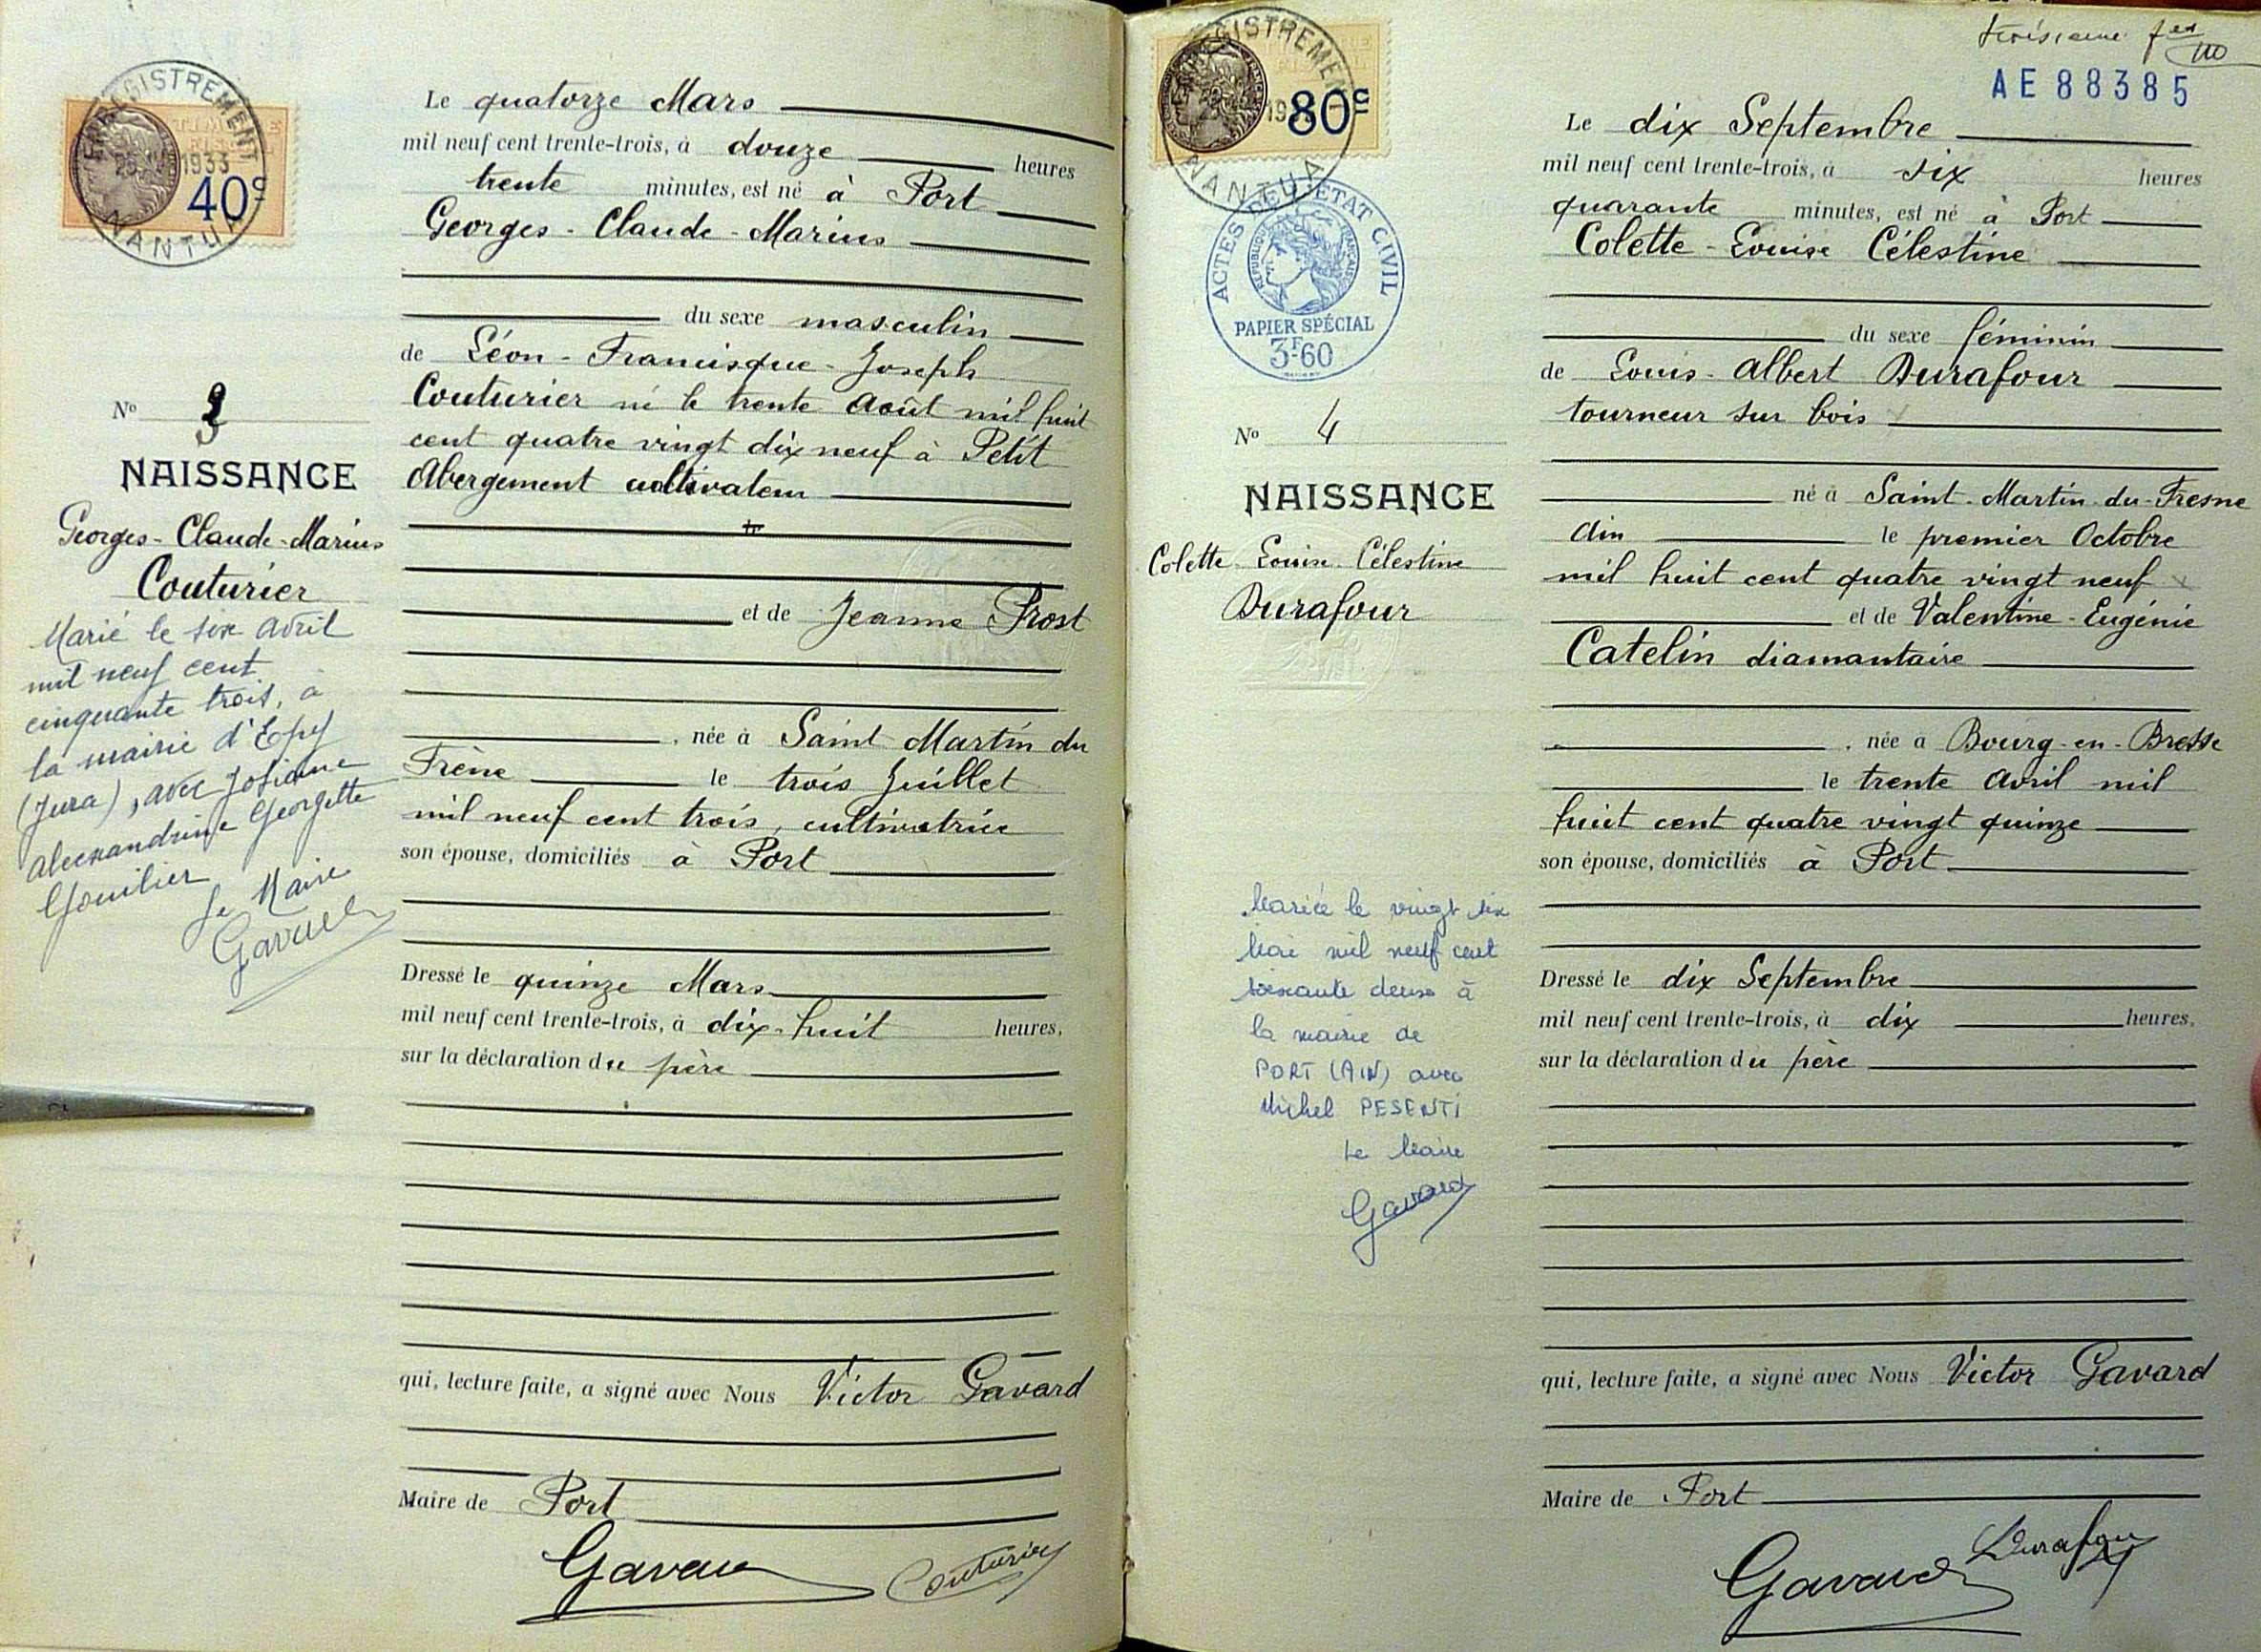 ENREGISTREMENT
1933
NANTUA
40c
Le quatorze Mars
mil neuf cent trente-trois, à douze heures
trente minutes, est né à Port
Georges - Claude - Marius
du sexe masculin
de Léon - Francisque - Joseph
Couturier né le trente Août mil huit
cent quatre vingt dix neuf à Petit
Abergement cultivateur
et de Jeanne Prost
, née à Saint Martin du
Frène le trois Juillet
mil neuf cent trois, cultivatrice
son épouse, domiciliés à Port
Dressé le quinze Mars
mil neuf cent trente-trois, à dix-huit heures,
sur la déclaration du père
qui, lecture faite, a signé avec Nous Victor Gavard
Maire de Port
Gavard
Couturier
No 3
NAISSANCE
Georges - Claude - Marius
Couturier
Marié le six Avril
mil neuf cent
cinquante trois, à
la mairie d'Epy
(Jura), avec Josiane
Alexandrine Georgette
Gouilier
Le Maire
Gavard
ENREGISTREMENT
NANTUA
80c
ACTES DE L'ETAT CIVIL
REPUBLIQUE FRANCAISE
PAPIER SPÉCIAL
3F60
troisième
AE 88385
Le dix Septembre
mil neuf cent trente-trois, à six heures
quarante minutes, est né à Port
Colette - Louise Célestine
du sexe féminin
de Louis - Albert Durafour
tourneur sur bois
né à Saint-Martin-du-Fresne
Ain le premier Octobre
mil huit cent quatre vingt neuf
et de Valentine - Eugénie
Catelin diamantaire
, née à Bourg-en-Bresse
le trente Avril mil
huit cent quatre vingt quinze
son épouse, domiciliés à Port
Dressé le dix Septembre
mil neuf cent trente-trois, à dix heures,
sur la déclaration du père
qui, lecture faite, a signé avec Nous Victor Gavard
Maire de Port
Gavard
Durafour
No 4
NAISSANCE
Colette Louise Célestine
Durafour
Mariée le vingt six
Mai mil neuf cent
soixante deux à
la mairie de
PORT (AIN) avec
Michel PESENTI
Le Maire
Gavard